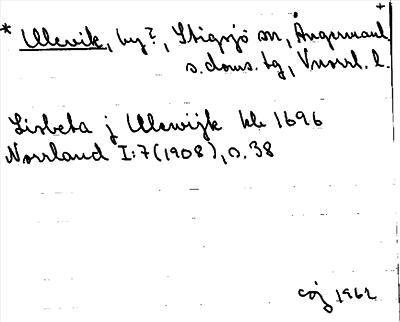 +
* Ulevik, by?, Stigsjö sn, Ångermanl.
s. doms. tg, Vnorrl. l.
Lisbeta j Ulewijk kb 1696
Norrland I:7 (1908), s. 38
1962